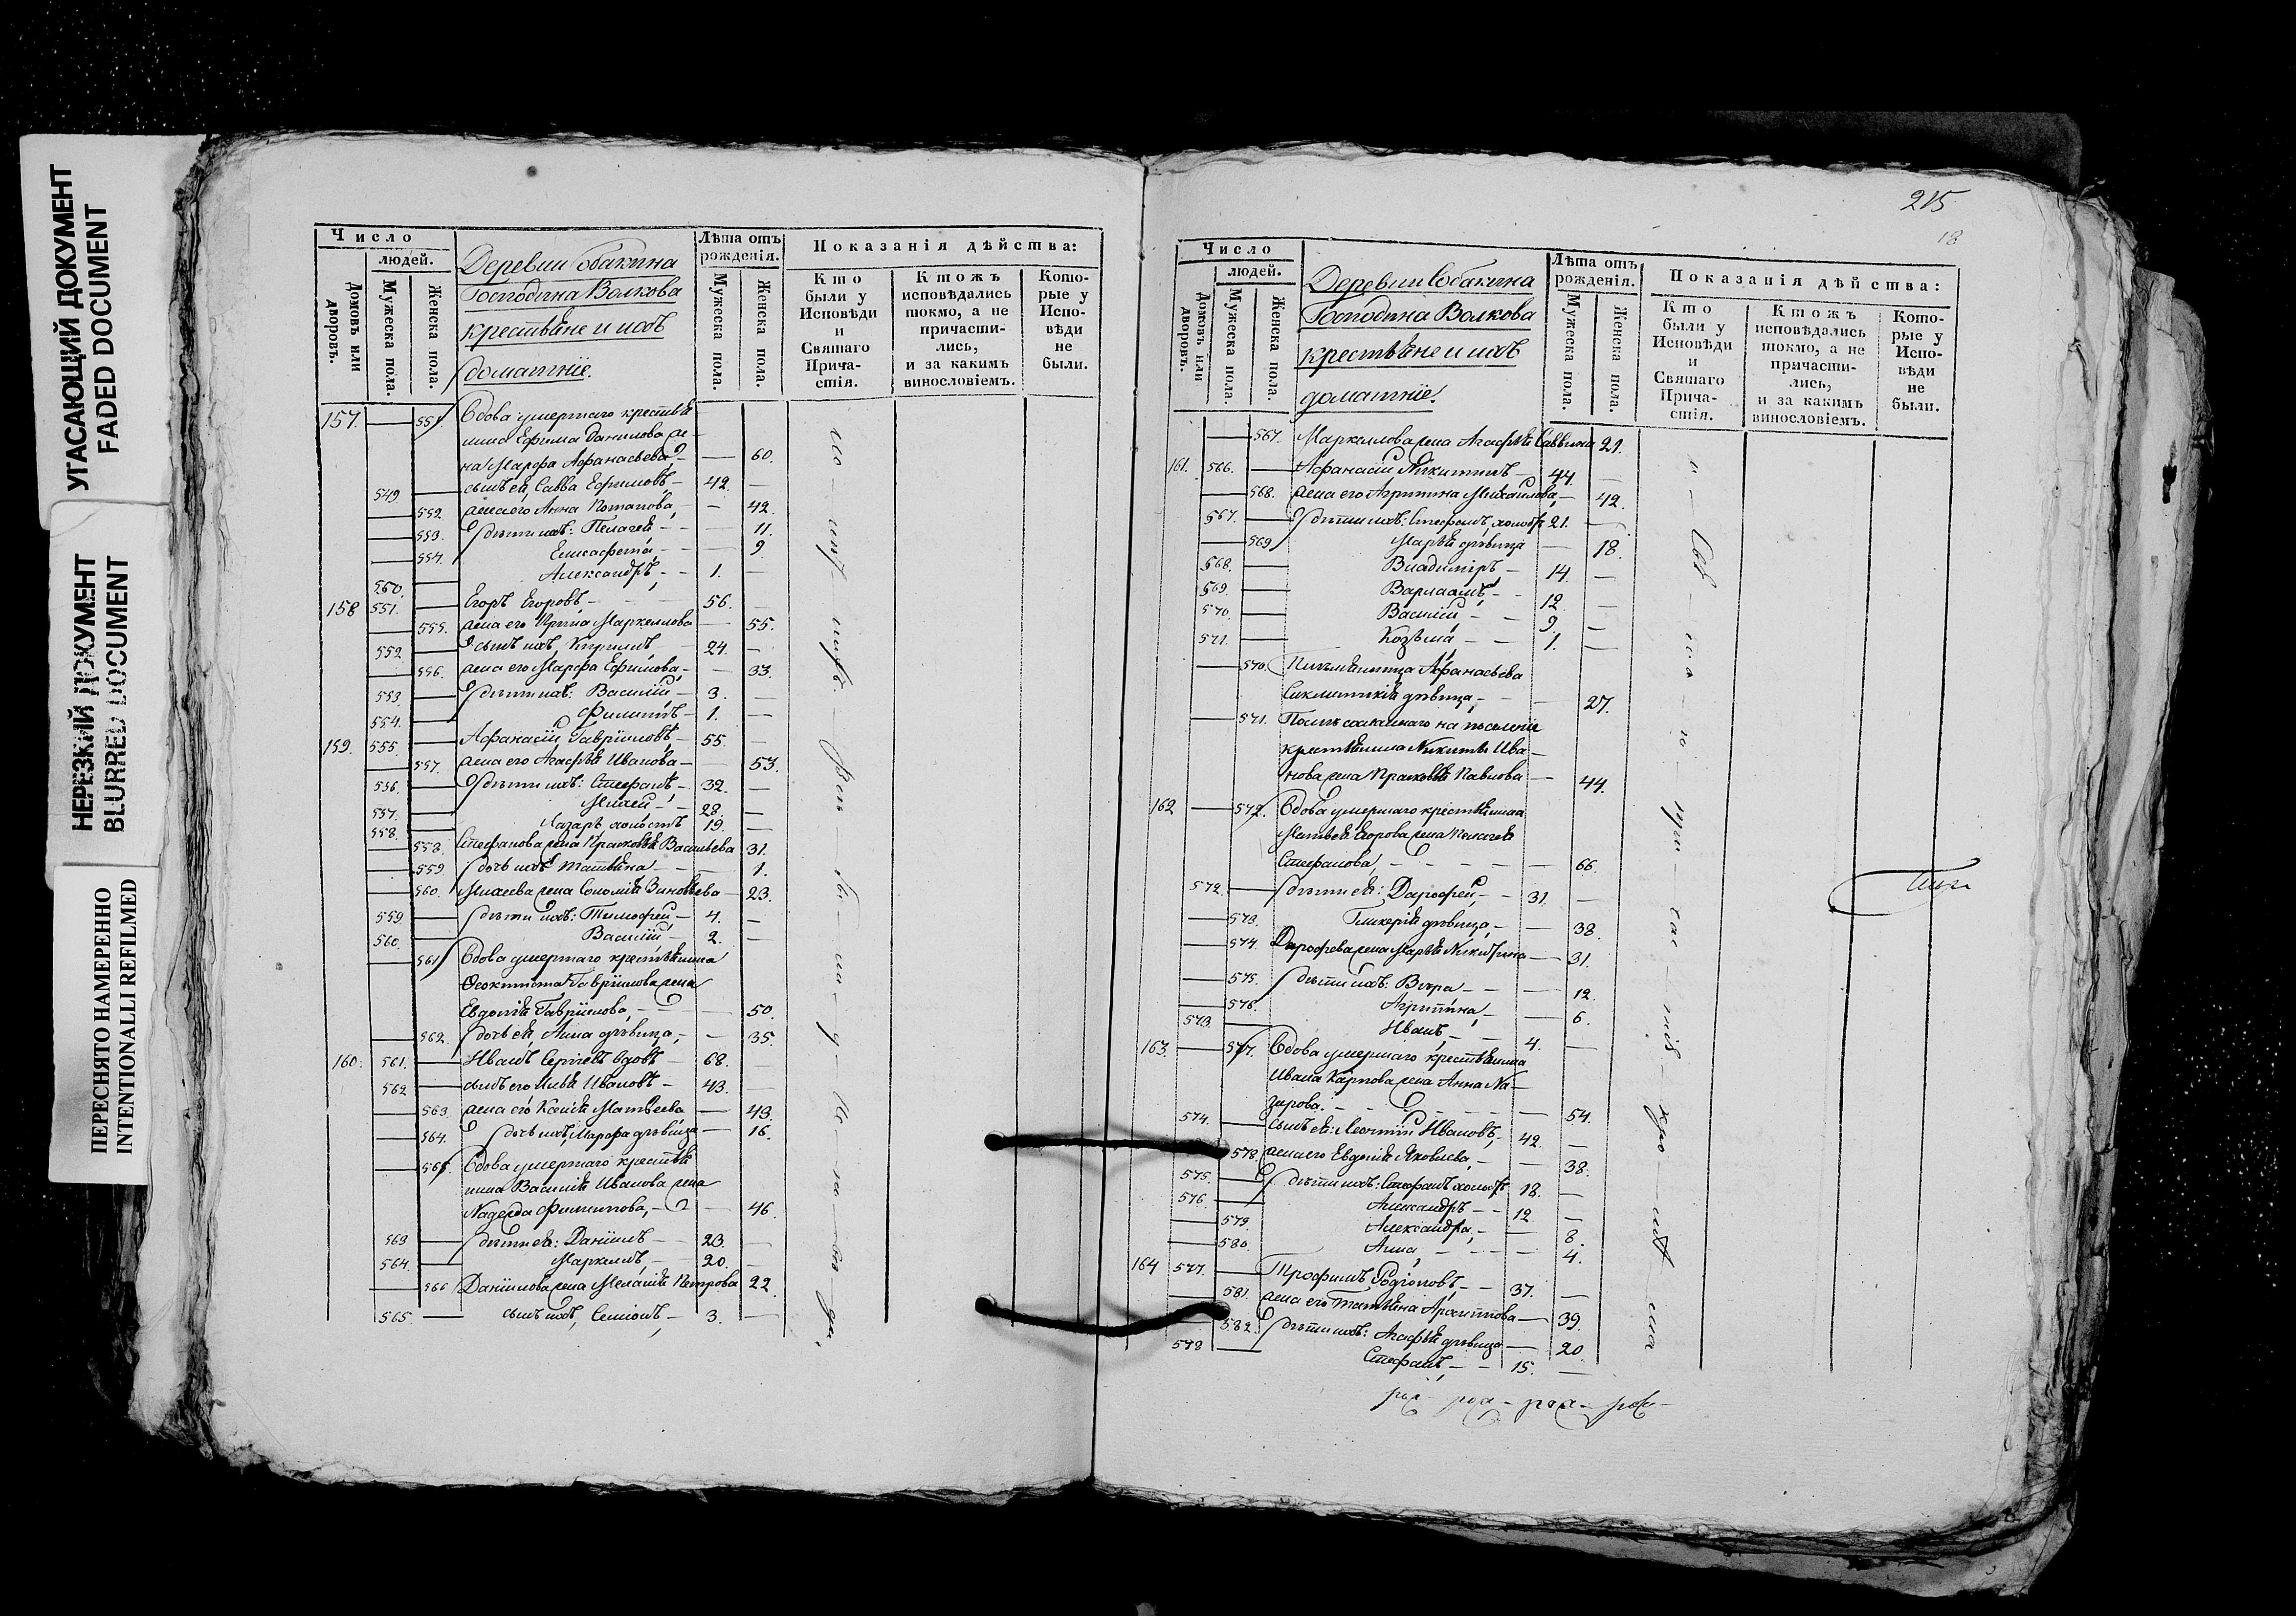 УГАСАЮЩИЙ ДОКУМЕНТ
FADED DOCUMENT
НЕРЕЗКИЙ ДОКУМЕНТ
BLURRED DOCUMENT
ПЕРЕСНЯТО НАМЕРЕННО
INTENTIONALLI REFILMED
Число
людей.
Домовъ или дворовъ.
Мужеска пола.
Женска пола.
Деревни Собакина
Господина Волкова
крестьяне и ихъ
домашніе.
Лѣта отъ рожденія.
Мужеска пола.
Женска пола.
Показанія дѣйства:
Кто были у Исповѣди и Святаго Причастія.
Ктожъ исповѣдались токмо, а не причастились, и за какимъ винословіемъ.
Которые у Исповѣди не были.
157. — 551. Вдова умершаго крестья
нина Ефима Данилова же
на Марфа Афанасьева — 60.
549 — сынъ ея, Савва Ефимовъ — 42. —
— 552. жена его Анна Потапова, — 42.
— 553. дѣти ихъ: Пелагея — 11.
— 554. Елисафета, — 9
550. — Александръ, — 1. —
158 551. — Егоръ Егоровъ, — 56. —
— 555. жена его Ирина Маркеллова — 55.
552. — сынъ ихъ, Кириллъ, — 24. —
— 556. жена его Марфа Ефимова, — 33.
553 — дѣти ихъ: Василій — 3. —
554. — Филиппъ — 1. —
159. 555. — Афанасій Гавріиловъ — 55. —
— 557. жена его Агафья Иванова — 53.
556. — дѣти ихъ: Стефанъ, — 32. —
557. — Михей — 28. —
558. — Лазарь холостъ 19. —
— 558. Стефанова жена Прасковья Васильева 31.
— 559. дочь ихъ Татьяна — 1.
— 560. Михеева жена Соломія Зиновьева — 23.
559 — дѣти ихъ: Тимофей, — 4. —
560. — Василій — 2. —
— 561 Вдова умершаго крестьянина
Феоктиста Гавріилова жена
Евдокія Гавріилова, — 50.
— 562. дочь ея, Анна дѣвица, — 35.
160. 561. — Иванъ Сергѣевъ вдовъ — 68. —
562 — сынъ его Илья Ивановъ — 43. —
— 563. жена его Ксенія Матвеева — 43.
— 564. дочь ихъ, Марфа дѣвица — 16.
— 565. Вдова умершаго крестья
нина Василія Иванова жена
Надежда Филиппова, — 46.
563 — дѣти ея: Даніилъ — 23. —
564. — Маркеллъ, — 20. —
— 566 Даніилова жена Меланія Петрова 22.
565. — сынъ ихъ, Семіонъ, — 3. —
215
18
Число
людей.
Домовъ или дворовъ.
Мужеска пола.
Женска пола.
Деревни Собакина
Господина Волкова
крестьяне и ихъ
домашніе.
Лѣта отъ рожденія.
Мужеска пола.
Женска пола.
Показанія дѣйства:
Кто были у Исповѣди и Святаго Причастія.
Ктожъ исповѣдались токмо, а не причастились, и за какимъ винословіемъ.
Которые у Исповѣди не были.
— 567. Маркеллова жена Агафья Саввина 21.
161. 566. — Афанасій Никитинъ — 44. —
— 568. жена его Агрипина Михайлова, — 42.
567. — дѣти ихъ: Стефанъ, холостъ 21. —
— 569 Марья дѣвица — 18.
568. — Владиміръ — 14. —
569. — Варлаамъ, — 12. —
570. — Василій, — 9. —
571. — Козьма — 1. —
— 570. Афанасьева
дѣвица, — 27.
— 571. на поселеніе
крестьянина Никиты Ива—
нова жена Прасковья Павлова — 44.
162 — 572. Вдова умершаго крестьянина
Матвея Егорова жена Пелагея
Стефанова, — 66.
572. — дѣти ея: Дарофей, — 31. —
— 573. Гликерія дѣвица, — 38.
— 574. Дарофева жена Марья Никитина — 31.
— 575. дѣти ихъ: Вѣра — 12.
— 576. Агрипина, — 6.
573. — Иванъ, — 4. —
163. — 577. Вдова умершаго крестьянина
Ивана Карпова жена Анна На—
зарова. — 54.
574. — сынъ ея: Леонтій Ивановъ, 42. —
— 578. жена его Евдокія Яковлева, — 38.
575. — дѣти ихъ: Стефанъ холостъ 18. —
576. — Александръ — 12 —
— 579. Александра, — 8.
— 580. Анна, — 4.
164 577. — Трофимъ Родіоновъ, — 37. —
— 581. жена его Татьяна Архиппова — 39.
— 582. дѣти ихъ: Агафья дѣвица — 20
578 — Стефанъ, — 15. —